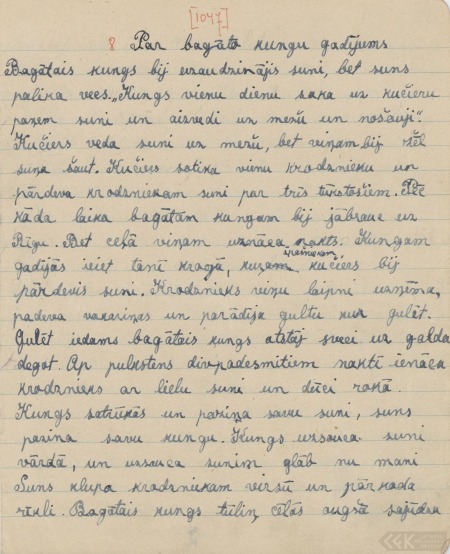 [1047]
8 Par bagāto kungu gadījums
Bagātais kungs bij uzaudzinājis suni, bet suns
palika vecs. „Kungs vienu dienu saka uz kučieru
paņem suni un aizvedi uz mežu un nošauji".
Kučiers veda suni uz mežu, bet viņam bij žēl
suņa šaut. Kučiers satika vienu krodznieku un
pārdeva krodzniekam suni par trīs tūkstošiem. Pēc
kāda laika bagātam kungam bij jābrauc uz
Rīgu. Bet ceļā viņam uznāca nakts. Kungam
gadījās ieiet tanī krogā, kuŗam kučiers bij
pārdevis suni. Krodznieks viņu laipni uzņēma,
padeva vakariņas un parādīja gultu kur gulēt.
Gulēt iedams bagātais kungs atstāj sveci uz galda
degot. Ap pulkstens divpadsmitiem naktī ienāca
krodznieks ar lielu suni un dūci rokā.
Kungs satrūkās un pazina savu suni, suns
pazina savu kungu. Kungs uzsauca suni
vārdā, un uzsauca sunim glāb nu mani
Suns klupa krodzniekam virsū un pārkoda
rīkli. Bagātais kungs tūliņ cēlās augšā sajūdza